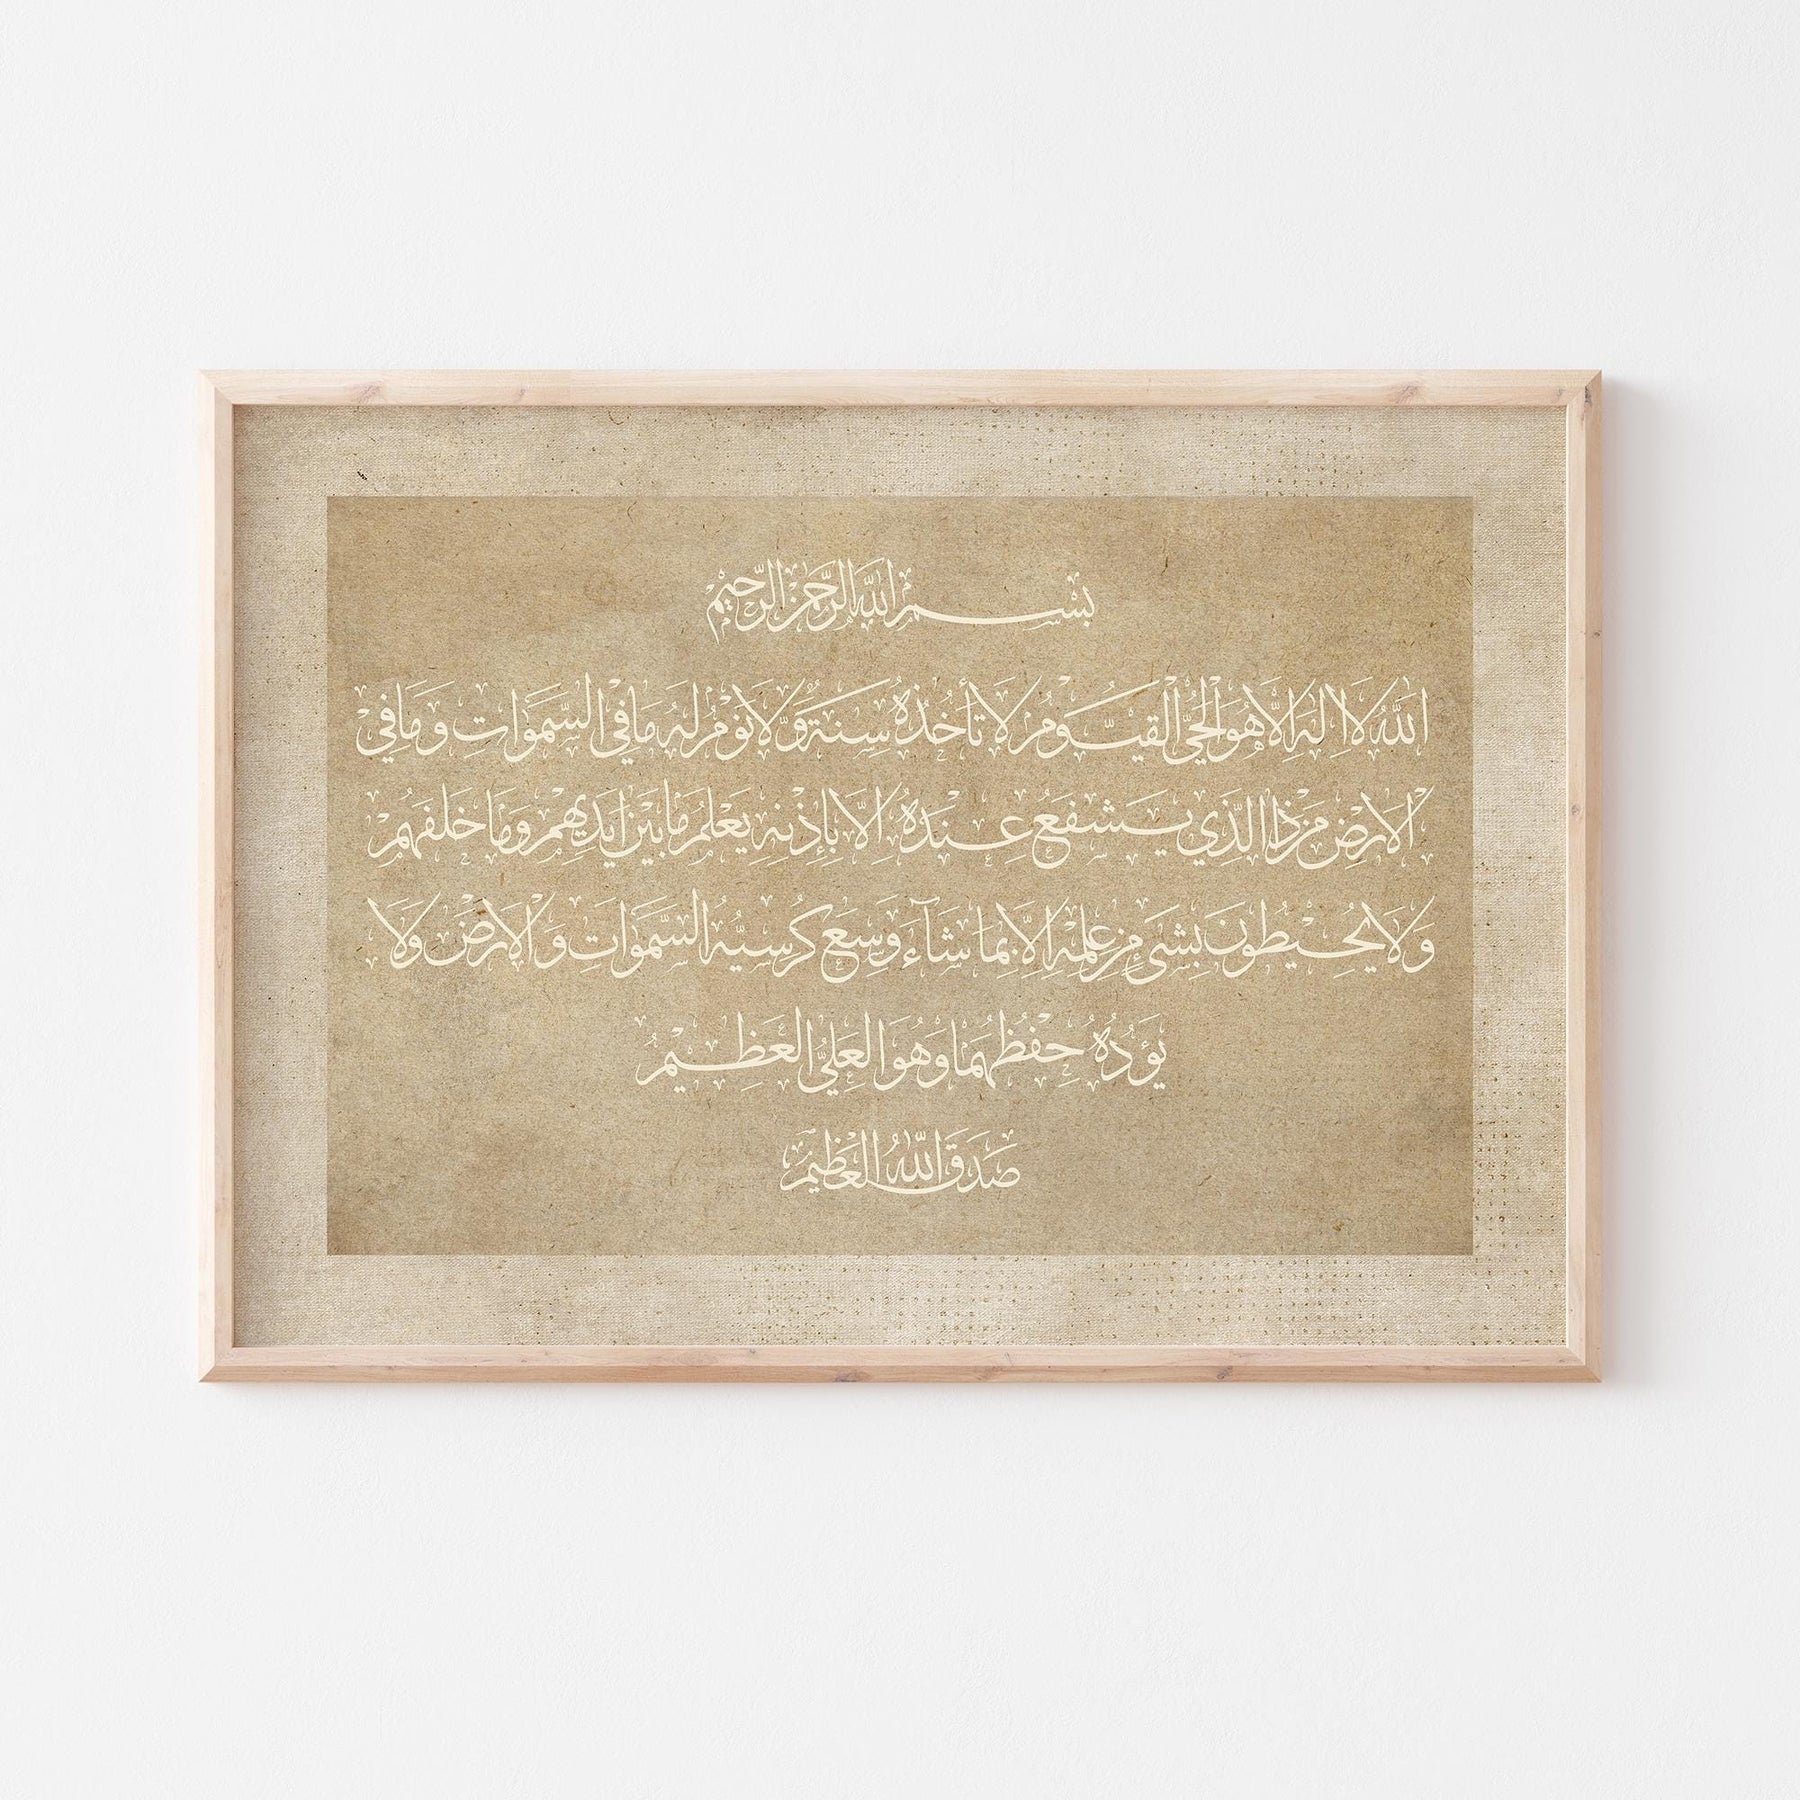 بسم الله الرحمن الرحيم
الله لا اله الا هو الحي القيوم لا تأخذه سنة ولا نوم له ما في السموات وما في
الارض من ذا الذي يشفع عنده الا بإذنه يعلم ما بين ايديهم وما خلفهم
ولا يحيطون بشئ من علمه الا بما شاء وسع كرسيه السموات والارض ولا
يؤده حفظهما وهو العلي العظيم
صدق الله العظيم